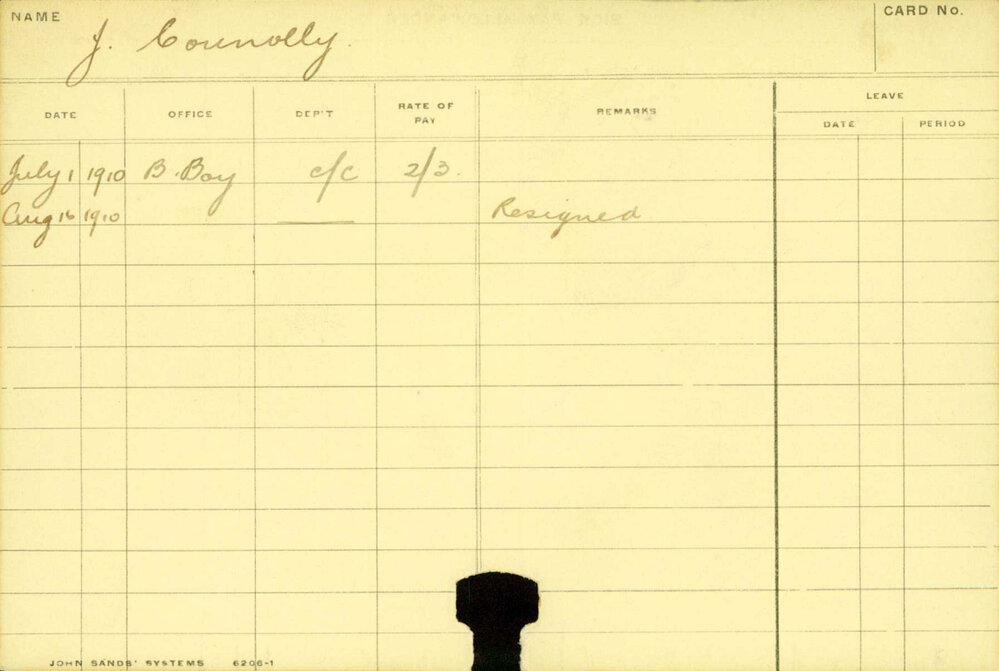 NAME J. Connolly. CARD No.
DATE OFFICE DEP'T RATE OF PAY REMARKS LEAVE
DATE PERIOD
July 1 1910 B. Boy c/c 2/3.
Aug 16 1910 Resigned
JOHN SANDS' SYSTEMS 6206-1